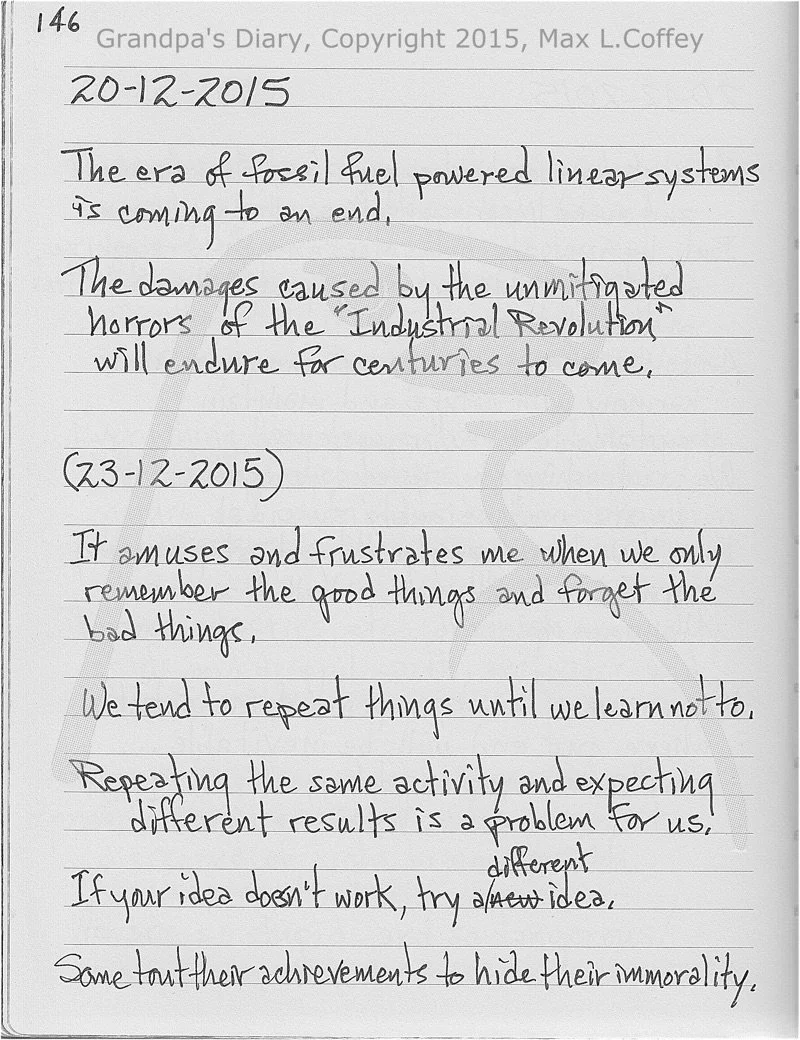 146
Grandpa's Diary, Copyright 2015, Max L.Coffey
20-12-2015
The era of fossil fuel powered linear systems
is coming to an end.
The damages caused by the unmitigated
horrors of the "Industrial Revolution"
will endure for centuries to come.
(23-12-2015)
It amuses and frustrates me when we only
remember the good things and forget the
bad things.
We tend to repeat things until we learn not to.
Repeating the same activity and expecting
different results is a problem for us.
different
If your idea doesn't work, try a new idea.
Some tout their achievements to hide their immorality.